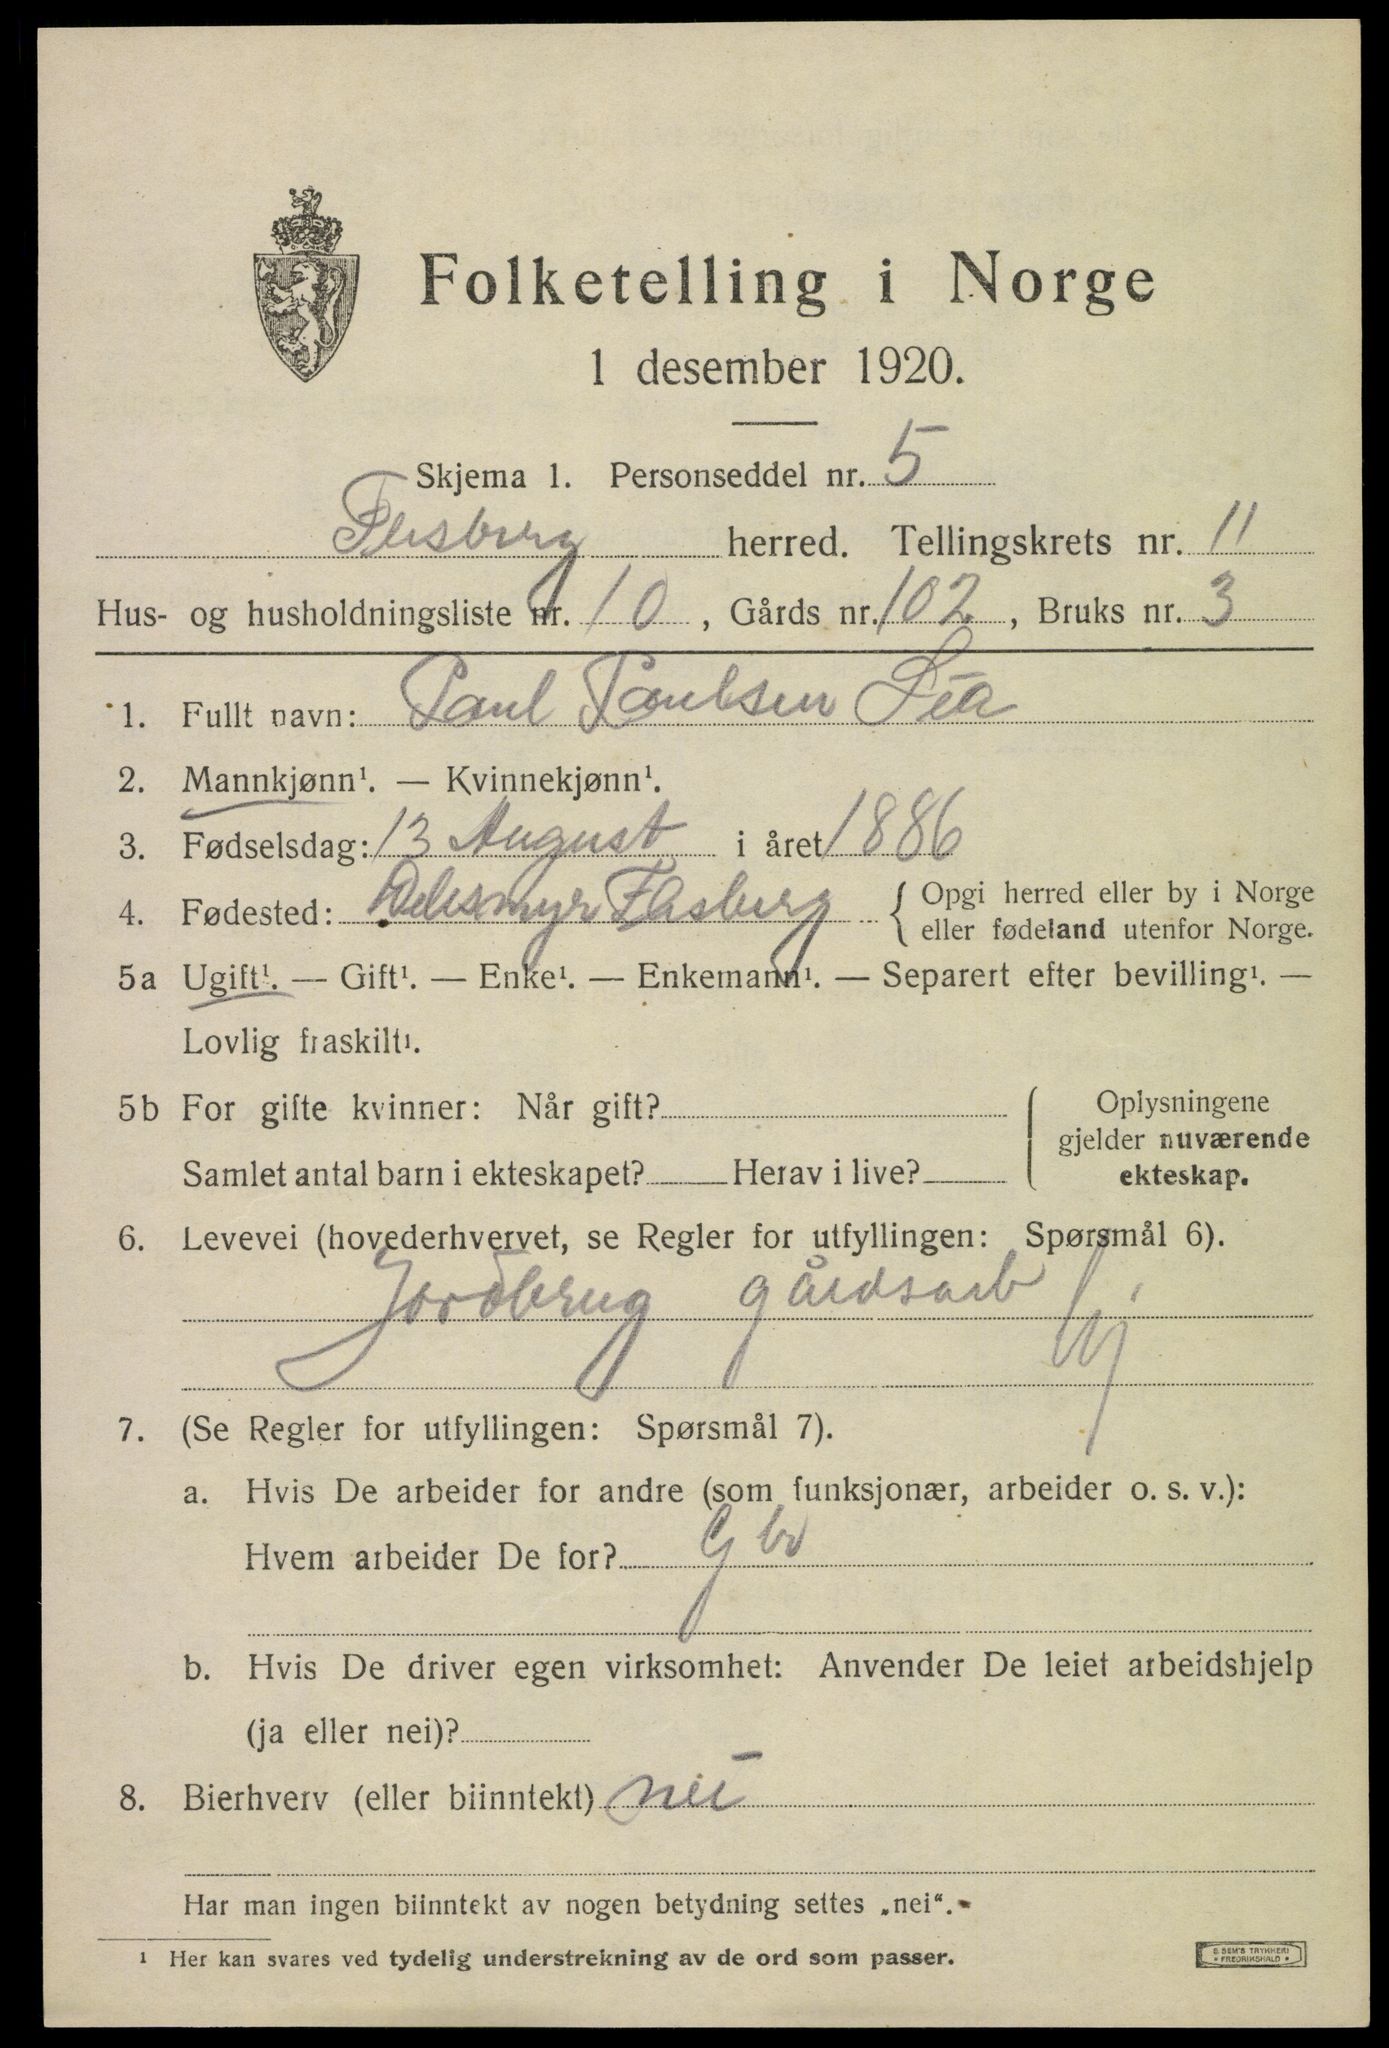 Folketelling i Norge
1 desember 1920.
Skjema 1. Personseddel nr. 5
Flesberg herred. Tellingskrets nr. 11
Hus- og husholdningsliste nr. 10, Gårds nr. 102, Bruks nr. 3
1. Fullt navn: Paul Paulsen Lia
2. Mannkjønn¹. — Kvinnekjønn¹.
3. Fødselsdag: 13 August i året 1886
4. Fødested: Flesberg { Opgi herred eller by i Norge
eller fødeland utenfor Norge.
5a Ugift¹. — Gift¹. — Enke¹. — Enkemann¹. — Separert efter bevilling¹. —
Lovlig fraskilt¹.
5b For gifte kvinner: Når gift?
Samlet antal barn i ekteskapet? Herav i live?
Oplysningene
gjelder nuværende
ekteskap.
6. Levevei (hovederhvervet, se Regler for utfyllingen: Spørsmål 6).
Jordbrug gårdsarb
7. (Se Regler for utfyllingen: Spørsmål 7).
a. Hvis De arbeider for andre (som funksjonær, arbeider o. s. v.):
Hvem arbeider De for? Gbr
b. Hvis De driver egen virksomhet: Anvender De leiet arbeidshjelp
(ja eller nei)?
8. Bierhverv (eller biinntekt) nei
Har man ingen biinntekt av nogen betydning settes „nei“.
¹ Her kan svares ved tydelig understrekning av de ord som passer.
S. SEM'S TRYKKERI
* FREDRIKSHALD *